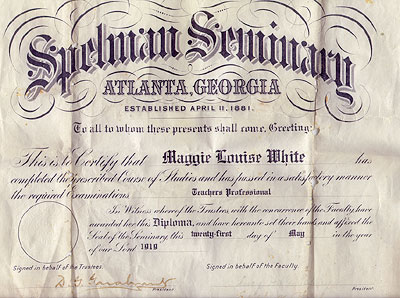 Spelman Seminary
ATLANTA, GEORGIA
ESTABLISHED APRIL 11, 1881.
To all to whom these presents shall come, Greeting:
This is to Certify that Maggie Louise White has
completed the prescribed Course of Studies and has passed in a satisfactory manner
the required Examinations Teachers Professional
In Witness whereof the Trustees, with the concurrence of the Faculty have
awarded her this Diploma, and have hereunto set their hands and affixed the
Seal of the Seminary, this twenty-first day of May in the year
of our Lord 1919
Signed in behalf of the Trustees. Signed in behalf of the Faculty.
President President